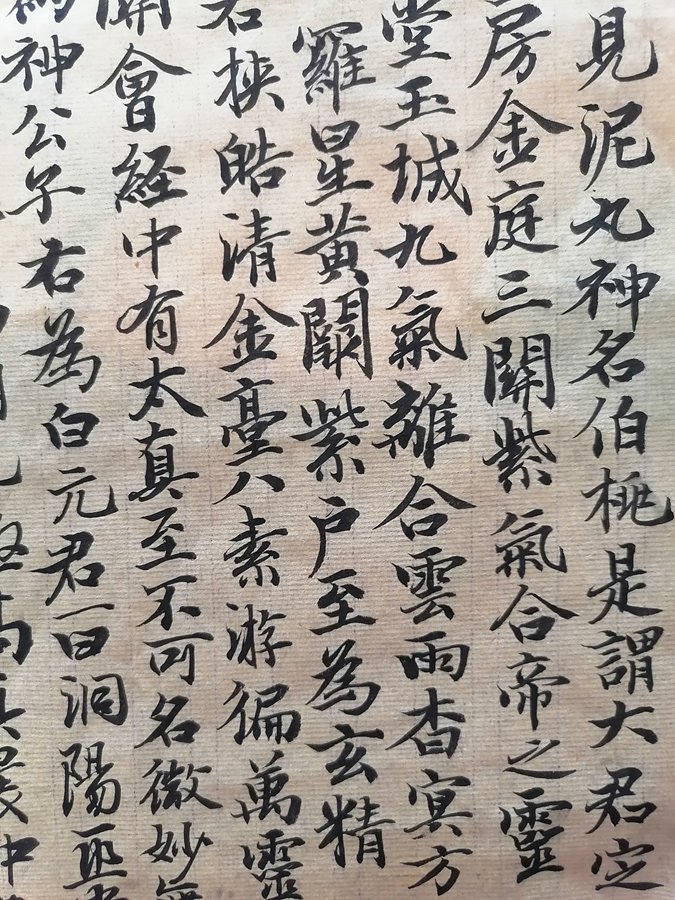 見泥丸神名伯桃是謂大君定
房金庭三關紫氣合帝之靈
堂玉城九氣離合雲雨杳冥方
羅星黃闕紫戶至為玄精
挾皓清金臺八素游徧萬靈
會經中有太真至不可名微妙無
神公子右為白元君一曰洞陽